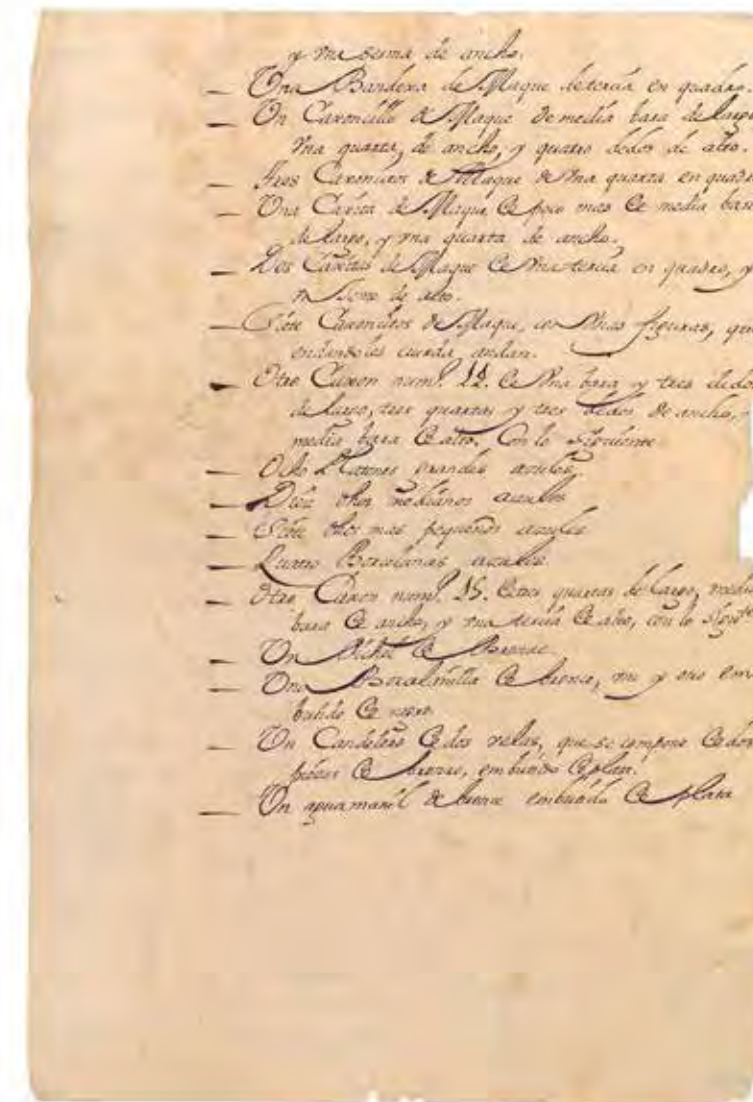 y vna sesma de ancho.
Una Bandexa de Maque de tercia en quadro.
Un Caxoncillo de Maque de media bara de largo
vna quarta, de ancho, y quatro dedos de alto.
Tres Caxoncitos de Maque de vna quarta en quadro
Una Caxita de Maque de poco mas de media bara
de largo, y vna quarta de ancho.
Dos Caxitas de Maque de vna tercia en quadro, y
de alto.
Siete Caxoncitos de Maque, con vnas figuras, que
dandoles cuerda, andan.
Otro Caxon num.º 14. de vna bara y tres dedos
de largo, tres quartas y tres dedos de ancho,
media bara de alto. Con lo siguiente
Ocho Platones grandes azules
Diez otros medianos azules
Siete otros mas pequeños azules
Quatro Bozelanas azules
Otro Caxon num.º 15. de tres quartas de largo, media
bara de ancho, y vna tercia de alto, con lo sigute
Un Pichel de Bronze
Una Bozelanilla de bronze, vno y otro em
butido de
Un Candelero de dos velas, que se compone de dos
piezas de bronze, embutido de plata.
Un aguamanil de bronze embutido de plata